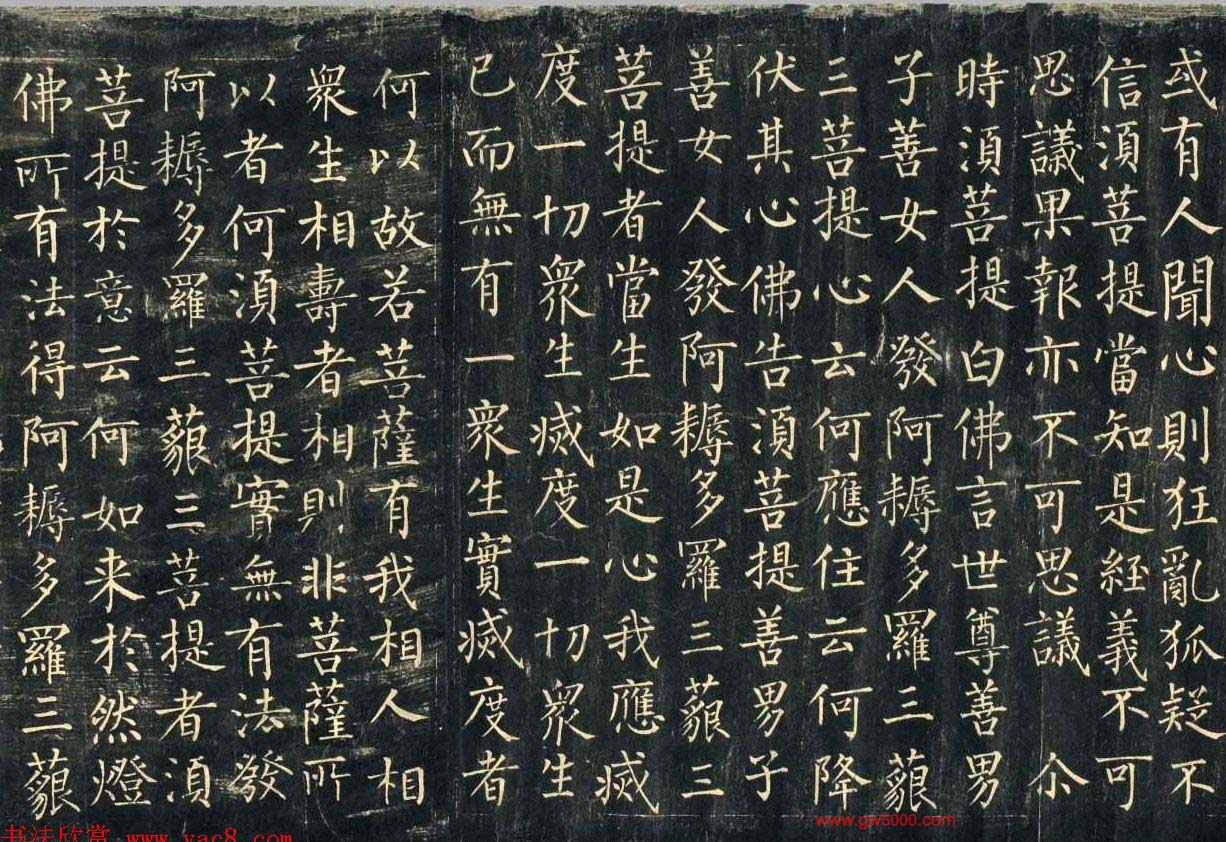 或有人聞心則狂亂狐疑不
信須菩提當知是経義不可
思議果報亦不可思議尒
時須菩提白佛言世尊善男
子善女人發阿耨多羅三藐
三菩提心云何應住云何降
伏其心佛告須菩提善男子
善女人發阿耨多羅三藐三
菩提者當生如是心我應滅
度一切眾生滅度一切眾生
已而無有一眾生實滅度者
何以故若菩薩有我相人相
眾生相壽者相則非菩薩所
以者何須菩提實無有法發
阿耨多羅三藐三菩提者須
菩提於意云何如来於然燈
佛所有法得阿耨多羅三藐
书法欣赏 www.yac8.com
www.gw5000.com